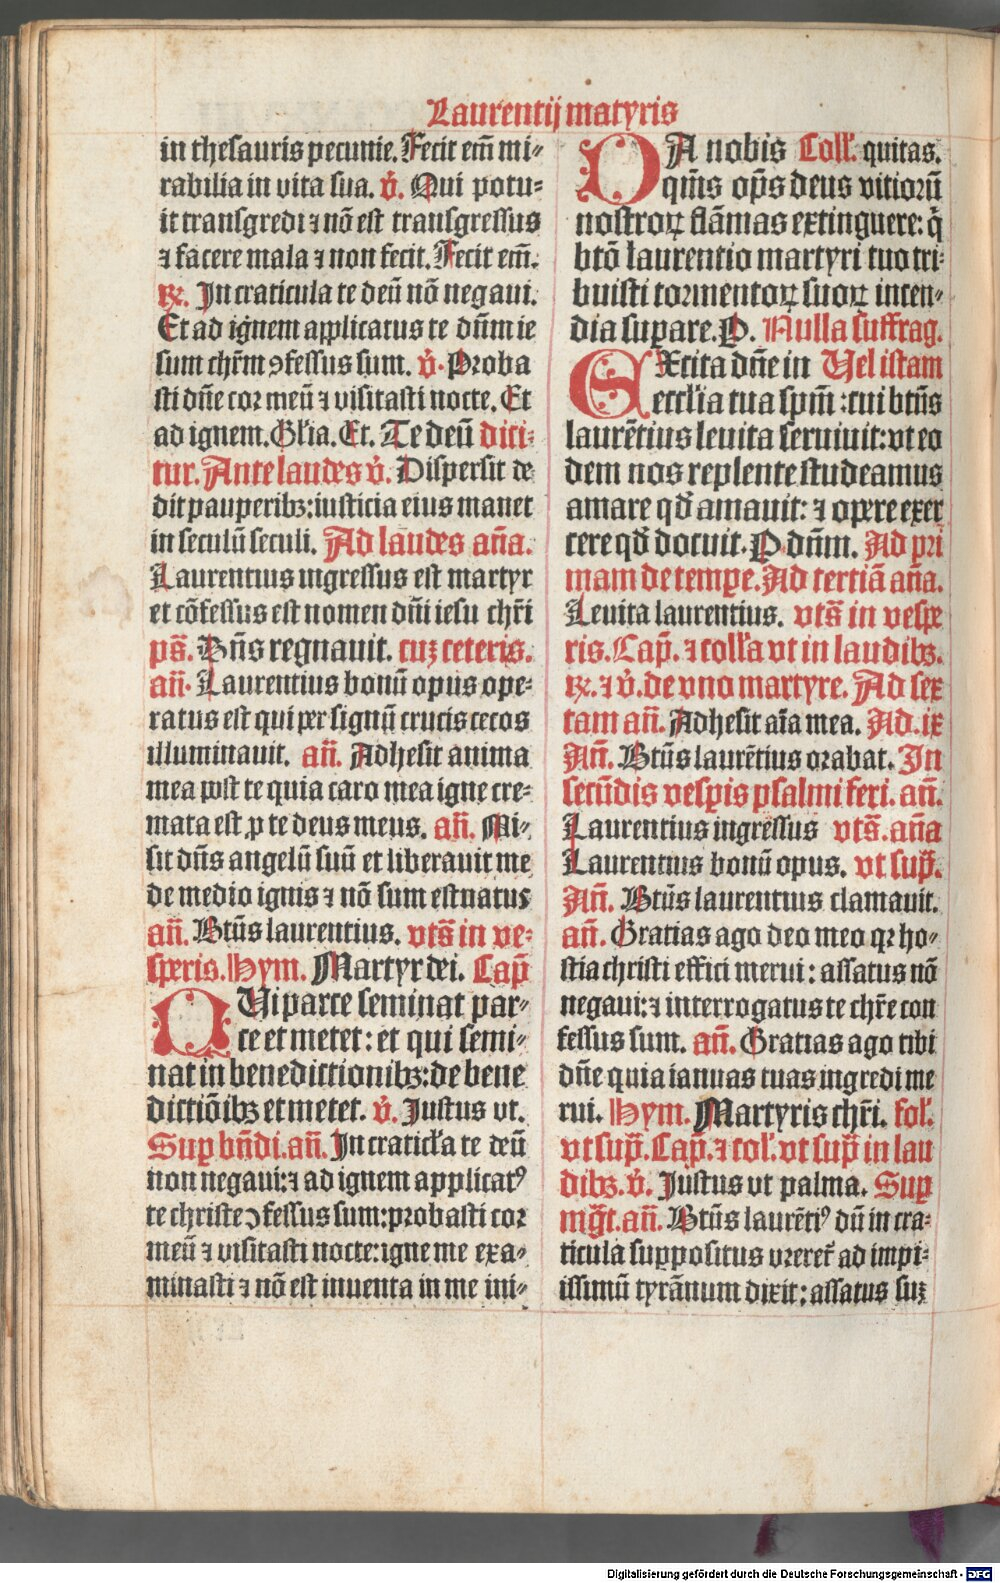 Laurentij matyris
in thesauris pecunie. Fecit em̄ mi⸗
rabilia in vita sua. v̄. Qui potu⸗
it transgredi ⁊ nō est transgressus
⁊ facere mala ⁊ non fecit. Fecit em̄.
℞. In craticula te deū nō negaui.
Et ad ignem applicatus te dūm ie
sum chr̄m ꝯfessus sum. v̄. Proba
sti dn̄e cor meū ⁊ visitasti nocte. Et
ad ignem. Gl'ia. Et. Te deū dici⸗
tur. Ante laudes v̄. Dispersit de
dit pauperibꝫ: iusticia eius manet
in seculū seculi. Ad laudes an̄a.
Laurentius ingressus est martyr
et cōfessus est nomen dn̄i iesu chr̄i
ps̄. Dn̄s regnauit. cuꝫ ceteris.
an̄. Laurentius bonū opus ope⸗
ratus est qui per signū crucis cecos
illuminauit. an̄. Adhesit anima
mea post te quia caro mea igne cre⸗
mata est ꝓ te deus meus. an̄. Mi⸗
sit dn̄s angelū suū et liberauit me
de medio ignis ⁊ nō sum estuatus
an̄. Btūs laurentius. vts̄ in ve⸗
speris. Hym. Martyr dei. Cap̄
QUi parce seminat par⸗
ce et metet: et qui semi⸗
nat in benedictionibꝫ: de bene
dictiōibꝫ et metet. v̄. Justus vt.
Sup bn̄di. an̄. In craticl'a te deū
non negaui: ⁊ ad ignem applicatꝰ
te christe ꝯfessus sum: probasti cor
meū ⁊ visitasti nocte: igne me exa⸗
minasti ⁊ nō est inuenta in me ini⸗
DA nobis Coll'. quitas.
qum̄s op̄s deus vitiorū
nostroꝝ flāmas extinguere: q̄
btō laurentio martyri tuo tri⸗
buisti tormentoꝝ suoꝝ incen⸗
dia suꝑare. P. Nulla suffrag.
EXcita dn̄e in Uel istam
eccl'ia tua spm̄: cui btūs
laurētius leuita seruiuit: vt eo
dem nos replente studeamus
amare qd̄ amauit: ⁊ opere exer
cere qd̄ docuit. P dūm. Ad pri
mam de tempe. Ad tertiā an̄a.
Leuita laurentius. vts̄ in vespe
ris. Cap̄. ⁊ coll'a vt in laudibꝫ.
℞. ⁊ v̄. de vno martyre. Ad sex
tam an̄. Adhesit aīa mea. Ad. ix
An̄. Btūs laurētius orabat. In
secūdis vesꝑis psalmi feri. an̄.
Laurentius ingressus vts̄. an̄a
Laurentius bonū opus. vt sup̄.
An̄. Btūs laurentius clamauit.
an̄. Gratias ago deo meo qꝛ ho⸗
stia christi effici merui: assatus nō
negaui: ⁊ interrogatus te chr̄e con
fessus sum. an̄. Gratias ago tibi
dn̄e quia ianuas tuas ingredi me
rui. Hym. Martyris chr̄i. fol'.
vt sup̄. Cap̄. ⁊ col'. vt sup̄ in lau
dibꝫ. v̄. Justus vt palma. Sup
mḡt. an̄. Btūs laurētiꝰ dū in cra⸗
ticula suppositus vreret̄ ad impi⸗
issimū tyrānum dixit: assatus suꝫ
Digitalisierung gefördert durch die Deutsche Forschungsgemeinschaft - DFG